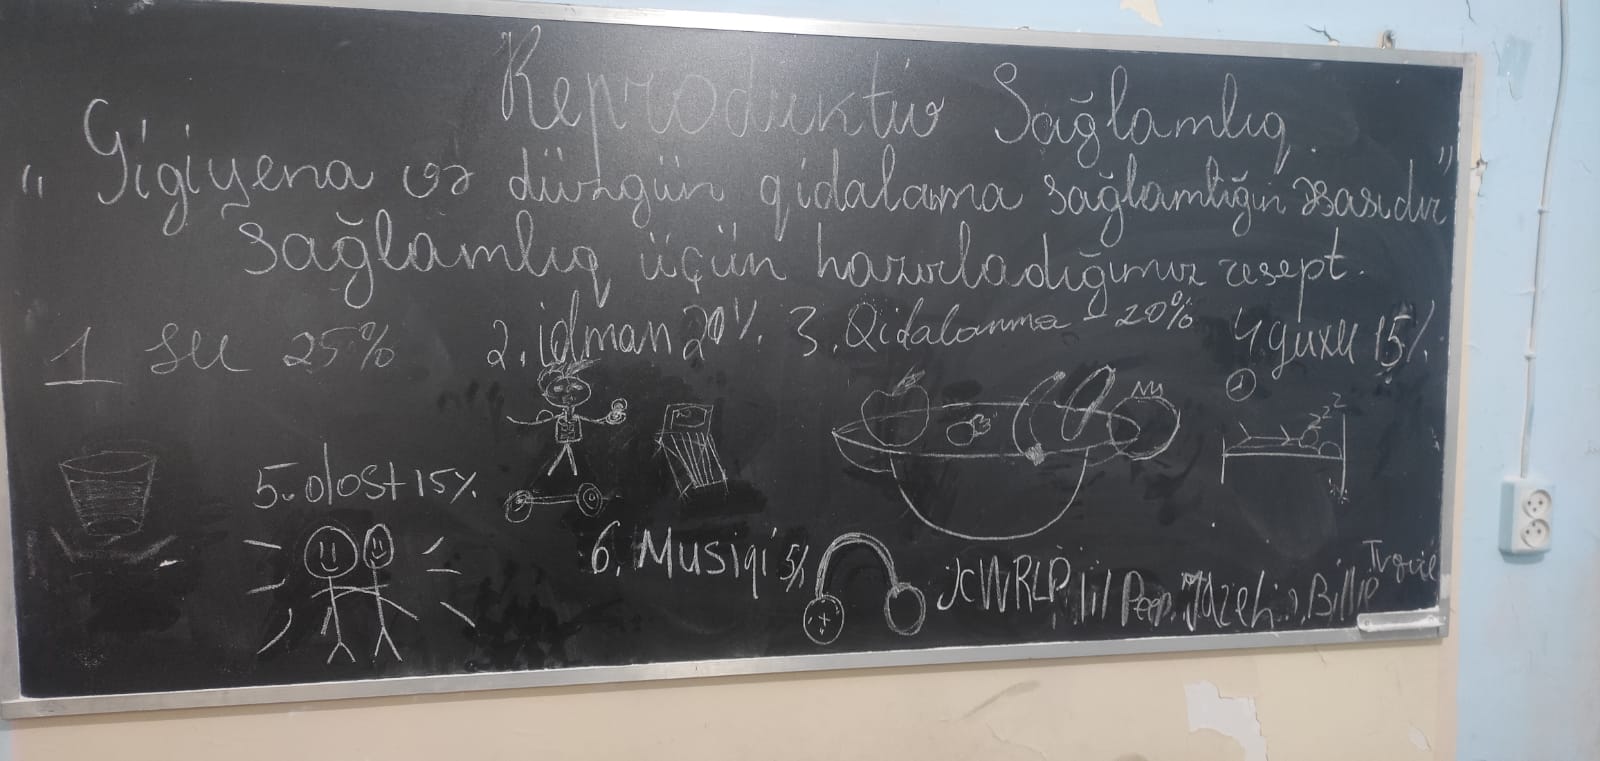 Reproduktiv Sağlamlıq
"Gigiyena və düzgün qidalama sağlamlığın əsasıdır"
Sağlamlıq üçün hazırladığımız resept.
1 su 25% 2. idman 20% 3. Qidalanma - 20% 4. yuxu 15%.
zzz
5. dost 15%.
6. Musiqi 5% JCWRLD lil Peep. Billie